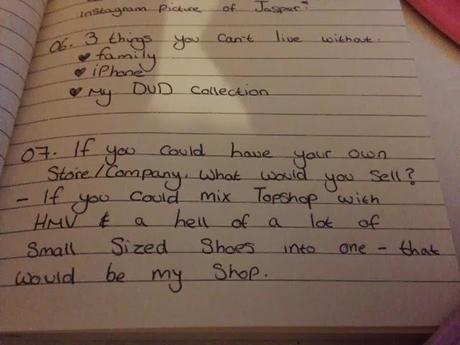 instagram picture of Jasper?
06. 3 things you can't live without.
♥ family
♥ iPhone
♥ My DVD Collection
07. If you could have your own
Store/Company, what would you sell?
- If you could mix Topshop with
HMV & a hell of a lot of
Small Sized Shoes into one - that
would be my Shop.